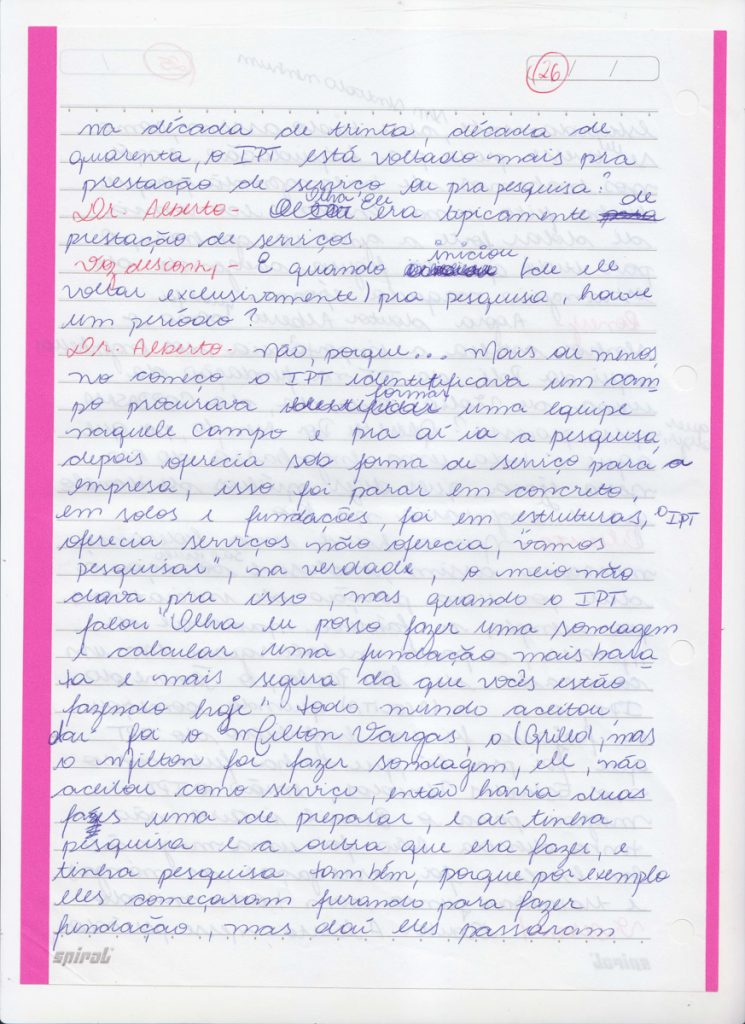 26 / /
na década de trinta, década de
quarenta, o IPT está voltado mais pra
prestação de serviço ou pra pesquisa?
Dr. Alberto - Olha Eu era tipicamente de
prestação de serviços
Voz desconh, - E quando iniciou (de ele
voltar exclusivamente) pra pesquisa, houve
um período?
Dr. Alberto - Não, porque... Mais ou menos,
no começo o IPT identificava um cam
po procurava formar uma equipe
naquele campo e pra aí ia a pesquisa,
depois oferecia sob forma de serviço para a
empresa, isso foi parar em concreto,
em solos e fundações, foi em estruturas, o IPT
oferecia serviços não oferecia, "vamos
pesquisar", na verdade, o meio não
dava pra isso, mas quando o IPT
falou "Olha eu posso fazer uma sondagem
e calcular uma fundação mais bara
ta e mais segura da que vocês estão
fazendo hoje" todo mundo aceitou
daí foi o Milton Vargas, o (Grillo), mas
o Milton foi fazer sondagem, ele, não
aceitou como serviço, então havia duas
fases uma de preparar, e aí tinha
pesquisa e a outra que era fazer, e
tinha pesquisa também, porque por exemplo
eles começaram furando para fazer
fundação, mas daí eles passaram
spiral